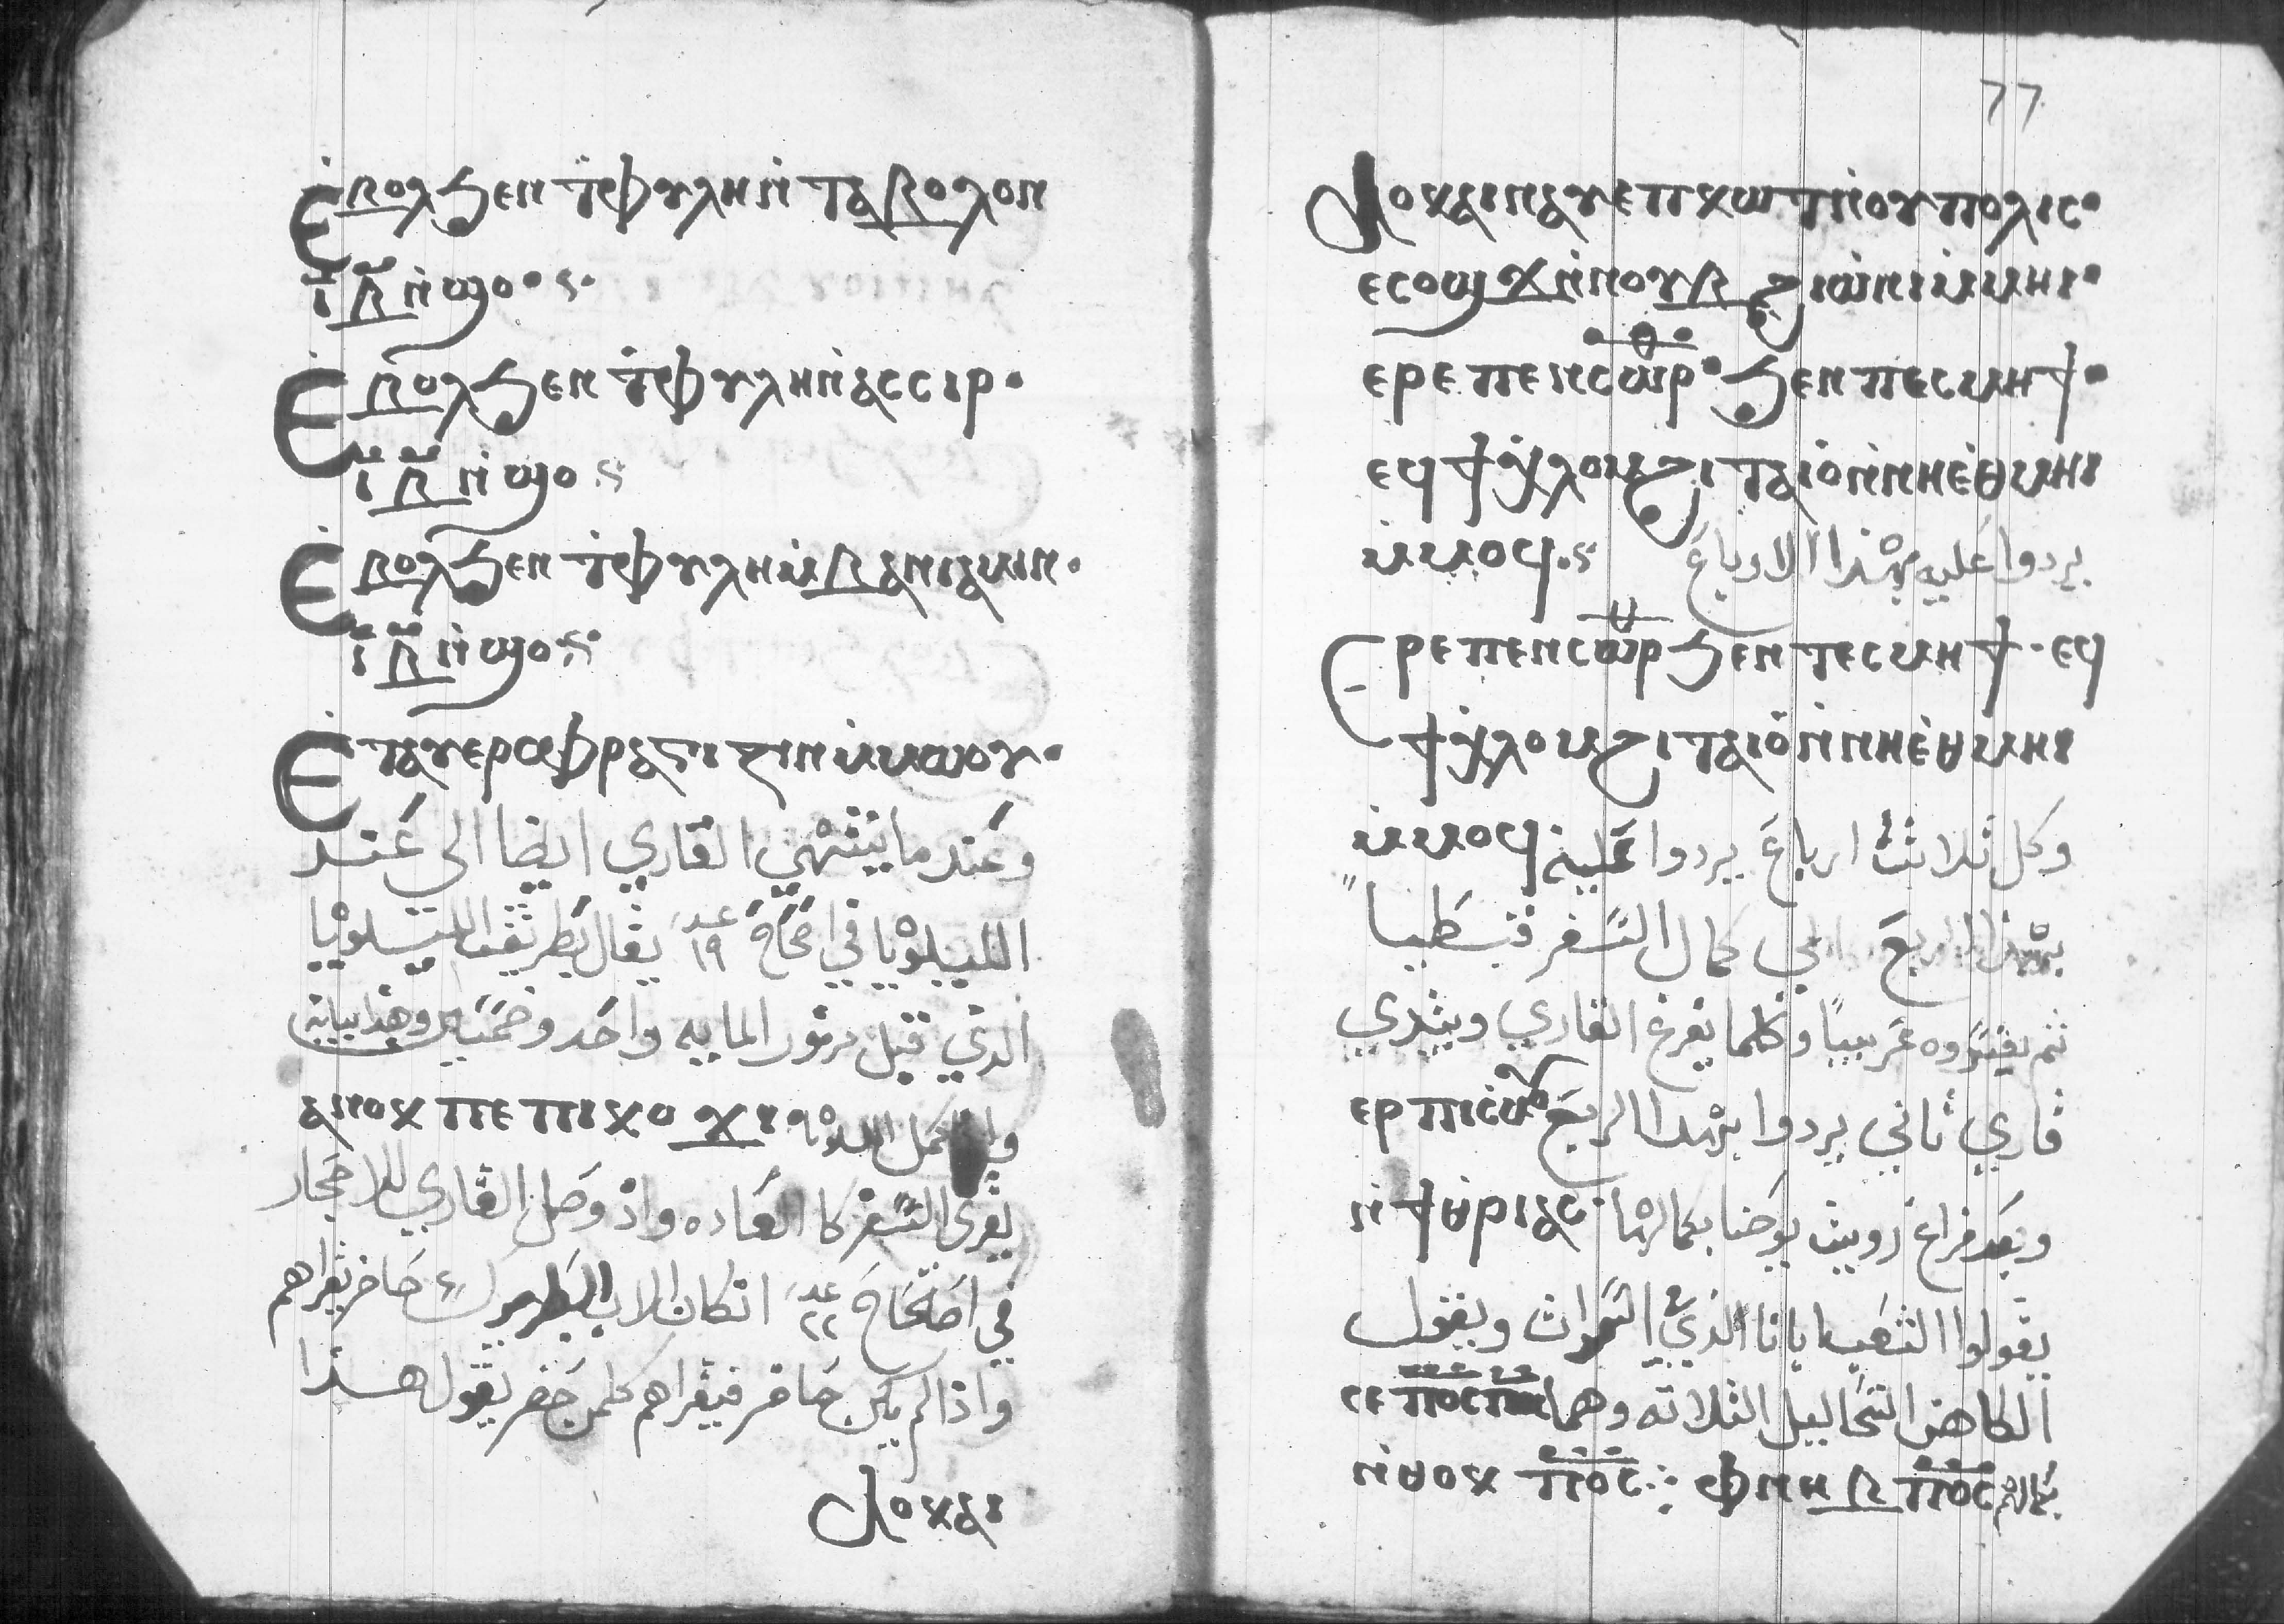 Ⲉ̀ⲃⲟⲗϧⲉⲛ ϯⲫⲩⲗⲏ ⲛ̀ ⲍⲁⲃⲟⲗⲟⲛ
ⲓ̅ⲃ̅ ⲛ̀ϣⲟ·
Ⲉ̀ⲃⲟⲗϧⲉⲛ ϯⲫⲩⲗⲏ ⲛ̀ⲁⲥⲥⲓⲣ·
ⲓ̅ⲃ̅ ⲛ̀ϣⲟ
Ⲉ̀ⲃⲟⲗϧⲉⲛ ϯⲫⲩⲗⲏ ⲙ̀ⲃⲁⲛⲓⲁⲙⲓⲛ·
ⲓ̅ⲃ̅ ⲛ̀ϣⲟ
Ⲉⲧⲁⲩⲉⲣⲥⲫⲣⲁⲅⲓⲍⲓⲛ ⲙ̀ⲙⲱⲟⲩ·
وعندما ينتهي القاري ايضا الي عند
الليلويا في اصحاح عدد ١٩ يقال بطريقة الليلويا
الذي قبل مزمور المايه واحد وخمسين وهذا بيانه
ⲁⲛⲟⲕ ⲡⲉ ⲡⲓⲕⲟⲩϫⲓ
يقرى السفر كا العاده واذ وصل القاري للاحجار
في اصحاح عدد ٢٢ انكان الاب البطريرك حاضر يقراهم
واذا لم يكن حاضر فيقراهم كلمن حضر يقول هذا
ⲗⲟⲕⲁⲓ
77
Ⲗⲟⲕⲁⲓⲛ ⲁⲩⲉⲡⲕⲱϯ ⲛ̀ⲟⲩⲡⲟⲗⲓⲥ·
ⲉⲥⲟϣϫ ⲛ̀ⲛⲟⲩⲃ ϩⲓⲱⲛⲓ ⲙ̀ⲙⲏⲓ·
ⲉⲣⲉ ⲡⲉⲛⲥⲱⲣ· ϧⲉⲛ ⲡⲉⲥⲙⲏϯ·
ⲉϥϯⲭ̀ⲗⲟⲙ ϩⲓ ⲧⲁⲓⲟ ⲛ̀ⲛⲏⲉ̀ⲑⲙⲏⲓ
ⲙ̀ⲙⲟϥ يردوا عليه بهذا الارباع
Ⲉⲣⲉ ⲡⲉⲛⲥⲱⲣ ϧⲉⲛ ⲧⲉⲥⲙⲏϯ· ⲉϥ
ϯⲭ̀ⲗⲟⲙ ϩⲓ ⲧⲁⲓⲟ ⲛ̀ⲛⲏⲉ̀ⲑⲙⲏⲓ
ⲙ̀ⲙⲟϥ وكل ثلاثة ارباع يردوا عليه
بهذا الربع الي كمال السفر قبطيا
ثم يفسروه عربيا وكلما يفرغ القاري ويبتدي
قاري ثاني يردوا بهذا الربع ⲉⲣ ⲡⲓⲥⲙⲟⲩ
وبعد فراغ رويت يوحنا بكمالها
يقولوا الشعب ابانا الذي في السموات ويقول
الكاهن التحاليل الثلاثه وهما ⲥⲉ ⲡⲟ̅ⲥ̅
ⲛ̀ⲑⲟⲕ ⲡⲟ̅ⲥ̅ ⲫⲛⲏⲃ ⲡⲟ̅ⲥ̅ بكمالهم